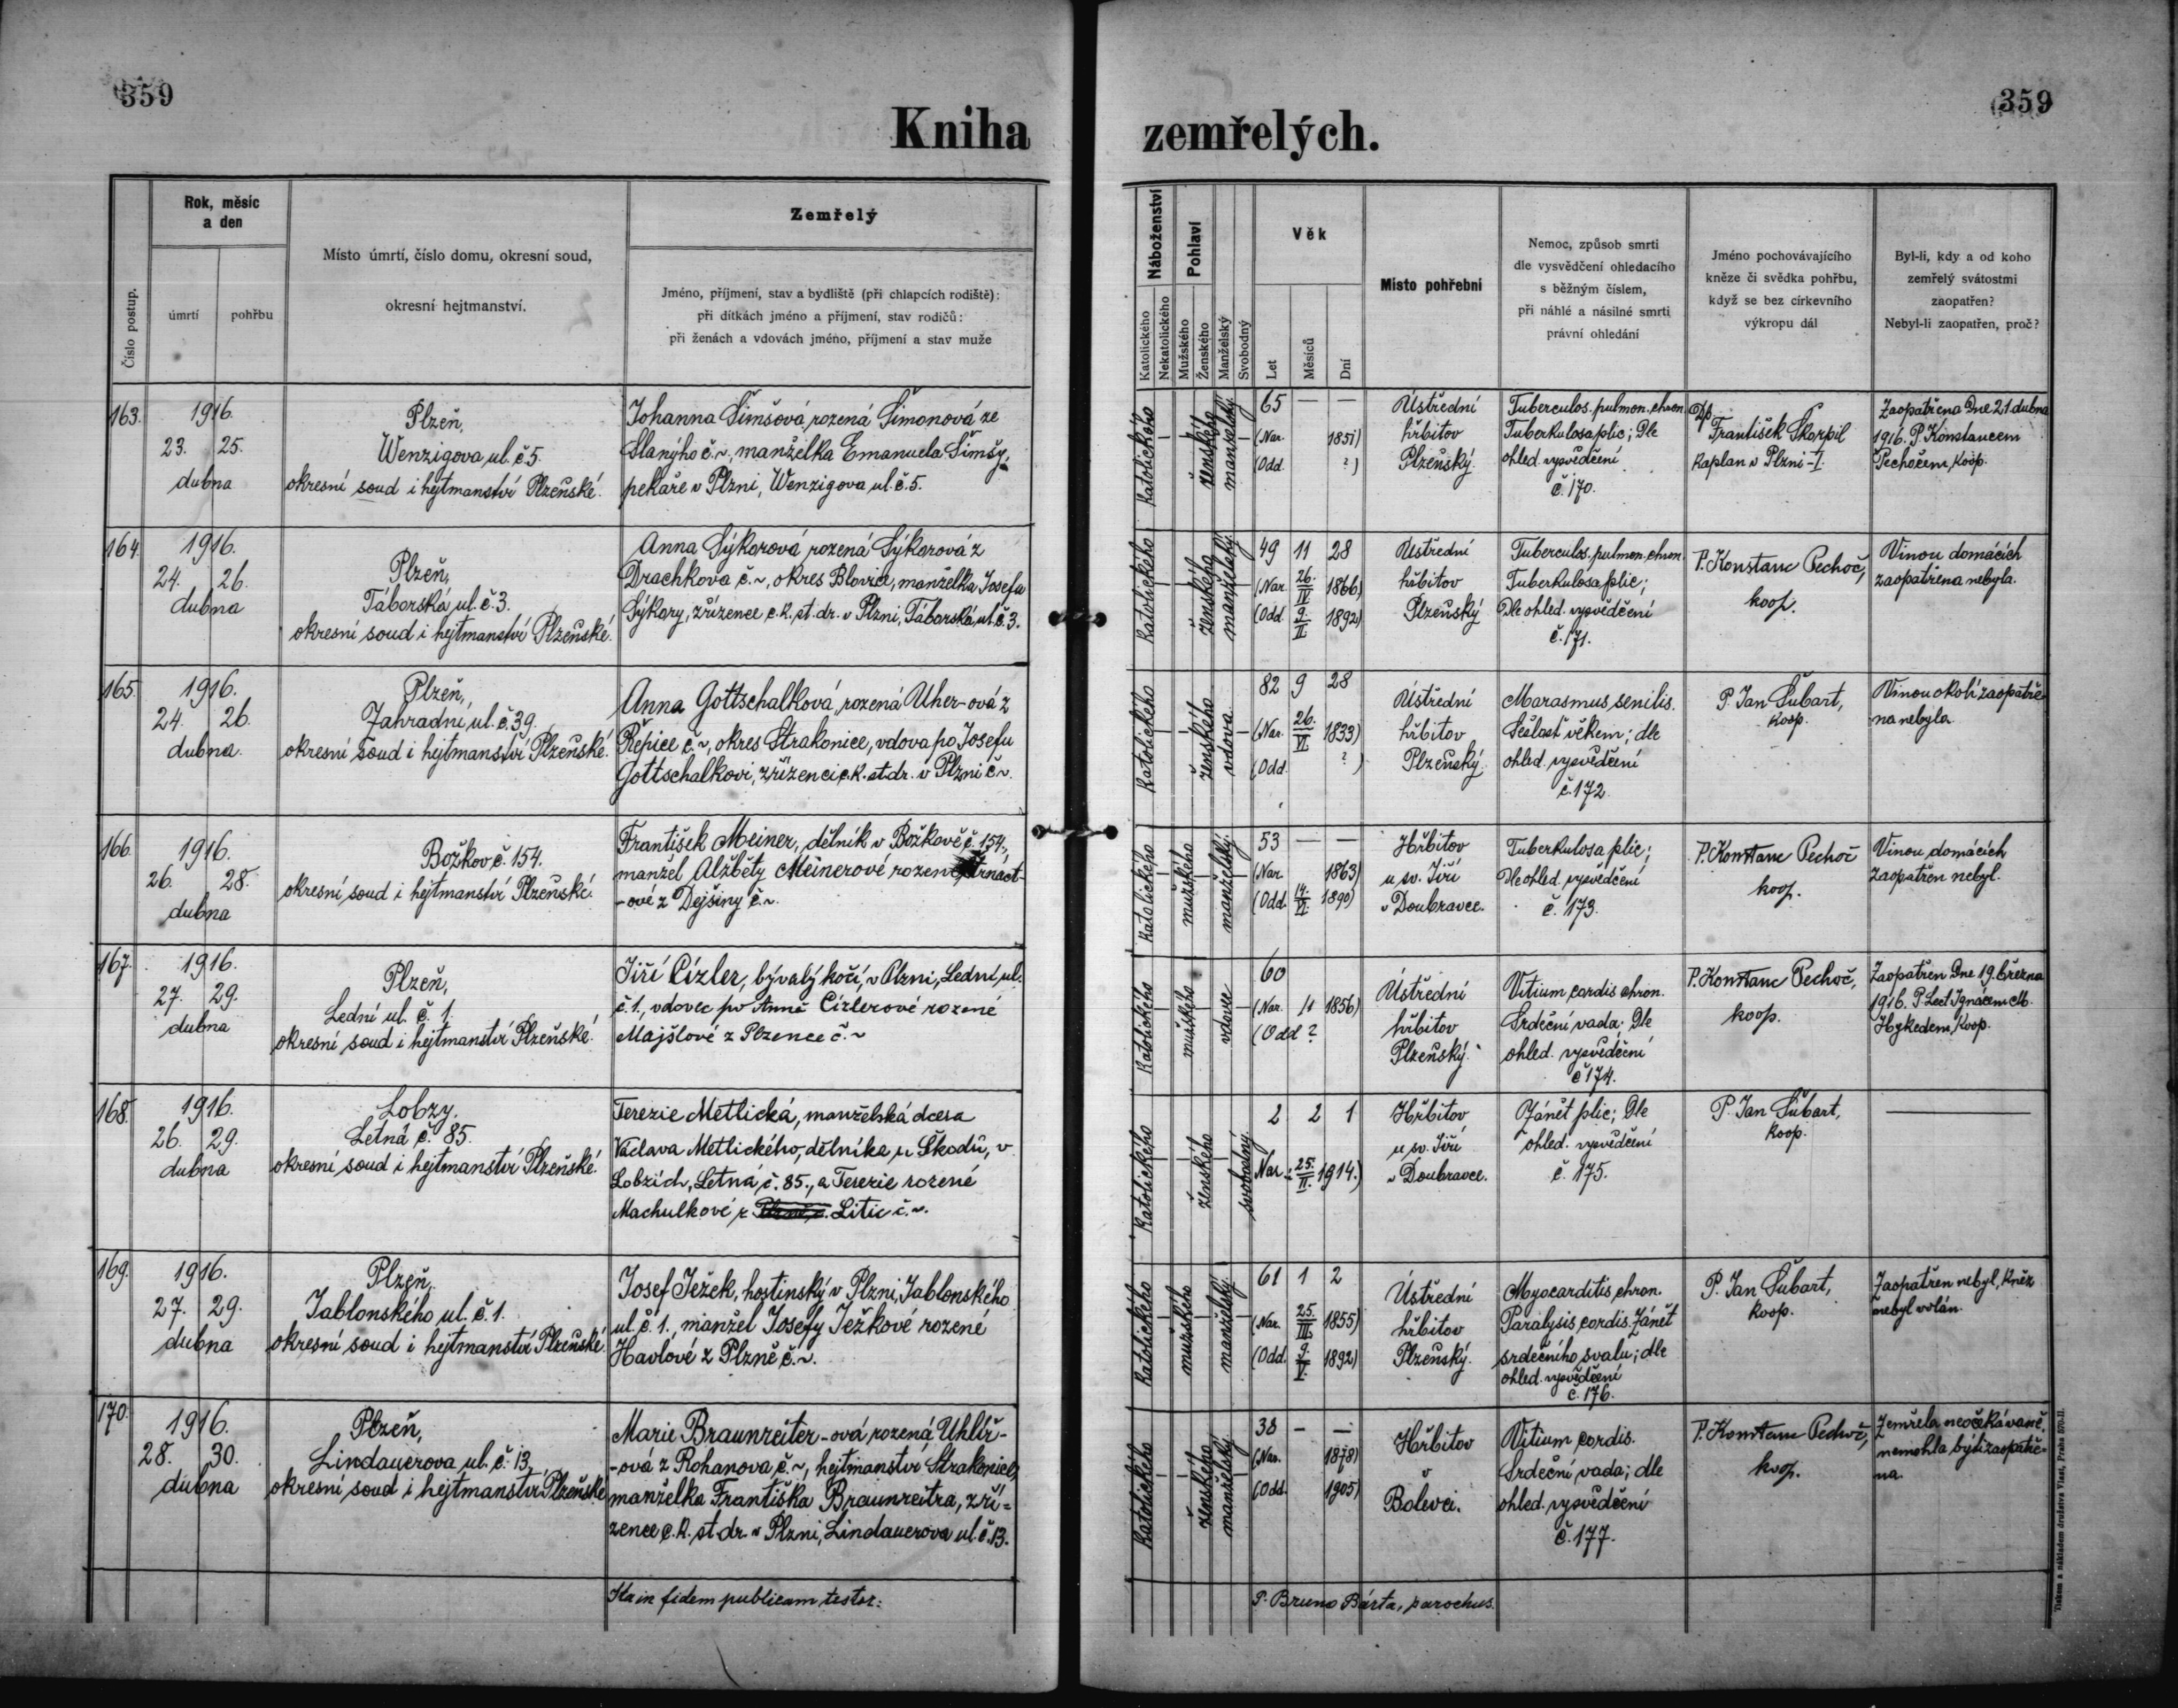 359
359
Kniha
zemřelých.
Číslo postup.
Rok, měsíc
a den
úmrtí
pohřbu
Místo úmrtí, číslo domu, okresní soud,
okresní hejtmanství.
Zemřelý
Jméno, příjmení, stav a bydliště (při chlapcích rodiště):
při dítkách jméno a příjmení, stav rodičů:
při ženách a vdovách jméno, příjmení a stav muže
Náboženství
Katolického
Nekatolického
Pohlaví
Mužského
Ženského
Manželský
Svobodný
Věk
Let
Měsíců
Dní
Místo pohřební
Nemoc, způsob smrti
dle vysvědčení ohledacího
s běžným číslem,
při náhlé a násilné smrti
právní ohledání
Jméno pochovávajícího
kněze či svědka pohřbu,
když se bez církevního
výkropu dál
Byl-li, kdy a od koho
zemřelý svátostmi
zaopatřen?
Nebyl-li zaopatřen, proč?
163.
1916.
23. 25.
dubna
Plzeň,
Wenzigova ul. č 5.
okresní soud i hejtmanství Plzeňské.
Johanna Šimšová, rozená Šimonová ze
Slanýho č. ~, manželka Emanuela Šimšy,
pekaře v Plzni, Wenzigova ul. č. 5.
Katolického
ženského
manželský.
65 — —
(Nar. 1851)
(Odd. ?)
Ústřední
hřbitov
Plzeňský.
Tuberculos. pulmon. chron.
Tuberkulosa plic; Dle
ohled. vysvědčení
č. 170.
Dp.
František Škorpil
Kaplan v Plzni-I.
Zaopatřena Dne 21 dubna
1916. P. Konstancem
Pechočem, koop.
164.
1916.
24. 26.
dubna
Plzeň,
Táborská ul. č 3.
okresní soud i hejtmanství Plzeňské.
Anna Sýkorová rozená Sýkorová z
Drachkova č. ~, okres Blovice, manželka Josefa
Sýkory, zřízence c. k. st. dr. v Plzni, Táborská ul. č. 3.
Katolického
ženského
manželský.
49 11 28
(Nar. 26./IV. 1866)
(Odd. 9./II. 1892)
Ústřední
hřbitov
Plzeňský
Tuberculos. pulmon. chron.
Tuberkulosa plic;
Dle ohled. vysvědčení
č. 171.
P. Konstanc Pechoč,
koop.
Vinou domácích
zaopatřena nebyla.
165.
1916.
24. 26.
dubna.
Plzeň,
Zahradní ul. č. 39.
okresní soud i hejtmanství Plzeňské.
Anna Gottschalková, rozená Uher-ová z
Řepice č. ~, okres Strakonice, vdova po Josefu
Gottschalkovi, zřízenci c. k. st. dr. v Plzni č ~.
Katolického
ženského
vdova.
82 9 28
(Nar. 26./VI. 1833)
(Odd. ?)
Ústřední
hřbitov
Plzeňský.
Marasmus senilis.
Sešlost věkem; dle
ohled. vysvědčení
č. 172.
P. Jan Šubart,
koop.
Vinou okolí zaopatře-
na nebyla.
166.
1916.
26. 28.
dubna
Božkov č. 154.
okresní soud i hejtmanství Plzeňské.
František Meiner, dělník v Božkově č. 154.,
manžel Alžběty Meinerové rozené Trnáct-
-ové z Dejšiny č ~.
Katolického
mužského
manželský.
53 — —
(Nar. 1863)
(Odd. 14./VI. 1890)
Hřbitov
u sv. Jiří
v Doubravce.
Tuberkulosa plic;
Dle ohled. vysvědčení
č. 173.
P. Konstanc Pechoč
koop.
Vinou domácích
zaopatřen nebyl.
167.
1916.
27. 29.
dubna
Plzeň,
Lední ul. č. 1.
okresní soud i hejtmanství Plzeňské.
Jiří Cízler, bývalý kočí, v Plzni, Lední ul.
č. 1., vdovec po Anně Cízlerové rozené
Majšlové z Plzence č. ~
Katolického
mužského
vdovec
60
(Nar. 1856)
(Odd ?
Ústřední
hřbitov
Plzeňský.
Vitium cordis chron.
Srdeční vada; Dle
ohled. vysvědčení
č 174.
P. Konstanc Pechoč,
koop.
Zaopatřen Dne 19. března
1916. P. Lect. Ignácem M.
Hykedem, koop.
168.
1916.
26. 29.
dubna
Lobzy.
Letná č. 85.
okresní soud i hejtmanství Plzeňské.
Terezie Metlická, manželská dcera
Václava Metlického, dělníka u Škodů, v
Lobzích, Letná, č. 85., a Terezie rozené
Machulkové z Litic č. ~.
Katolického
ženského
svobodný.
2 2 1
Nar.: 25./II. 1914.)
Hřbitov
u sv. Jiří
v Doubravce.
Zánět plic; Dle
ohled. vysvědčení
č. 175.
P. Jan Šubart,
koop.
—
169.
1916.
27. 29.
dubna
Plzeň,
Jablonského ul. č. 1.
okresní soud i hejtmanství Plzeňské.
Josef Ježek, hostinský v Plzni, Jablonského
ul. č. 1., manžel Josefy Ježkové rozené
Havlové z Plzně č. ~.
Katolického
mužského
manželský.
61 1 2
(Nar. 25./III. 1855)
(Odd. 9./V. 1892)
Ústřední
hřbitov
Plzeňský.
Myocarditis, chron.
Paralysis cordis. Zánět
srdečního svalu; dle
ohled. vysvědčení
č. 176.
P. Jan Šubart,
koop.
Zaopatřen nebyl, kněz
nebyl volán.
170.
1916.
28. 30.
dubna
Plzeň,
Lindauerova ul. č. 13,
okresní soud i hejtmanství Plzeňské
Marie Braunreiter-ová rozená Uhlíř-
-ová z Rohanova č. ~, hejtmanství Strakonice,
manželka Františka Braunreitra, zří-
zence c. k. st. dr. v Plzni, Lindauerova ul. č. 13.
Katolického
ženského
manželský
38 — —
(Nar. 1878)
(Odd. 1905)
Hřbitov
v
Bolevci.
Vitium cordis.
Srdeční vada; dle
ohled. vysvědčení
č. 177.
P. Konstanc Pechoč,
koop.
Zemřela neočekávaně,
nemohla býti zaopatře-
na.
Ita in fidem publicam testor:
P. Bruno Bárta, parochus.
Tiskem a nákladem družstva Vlast, Praha 570-II.